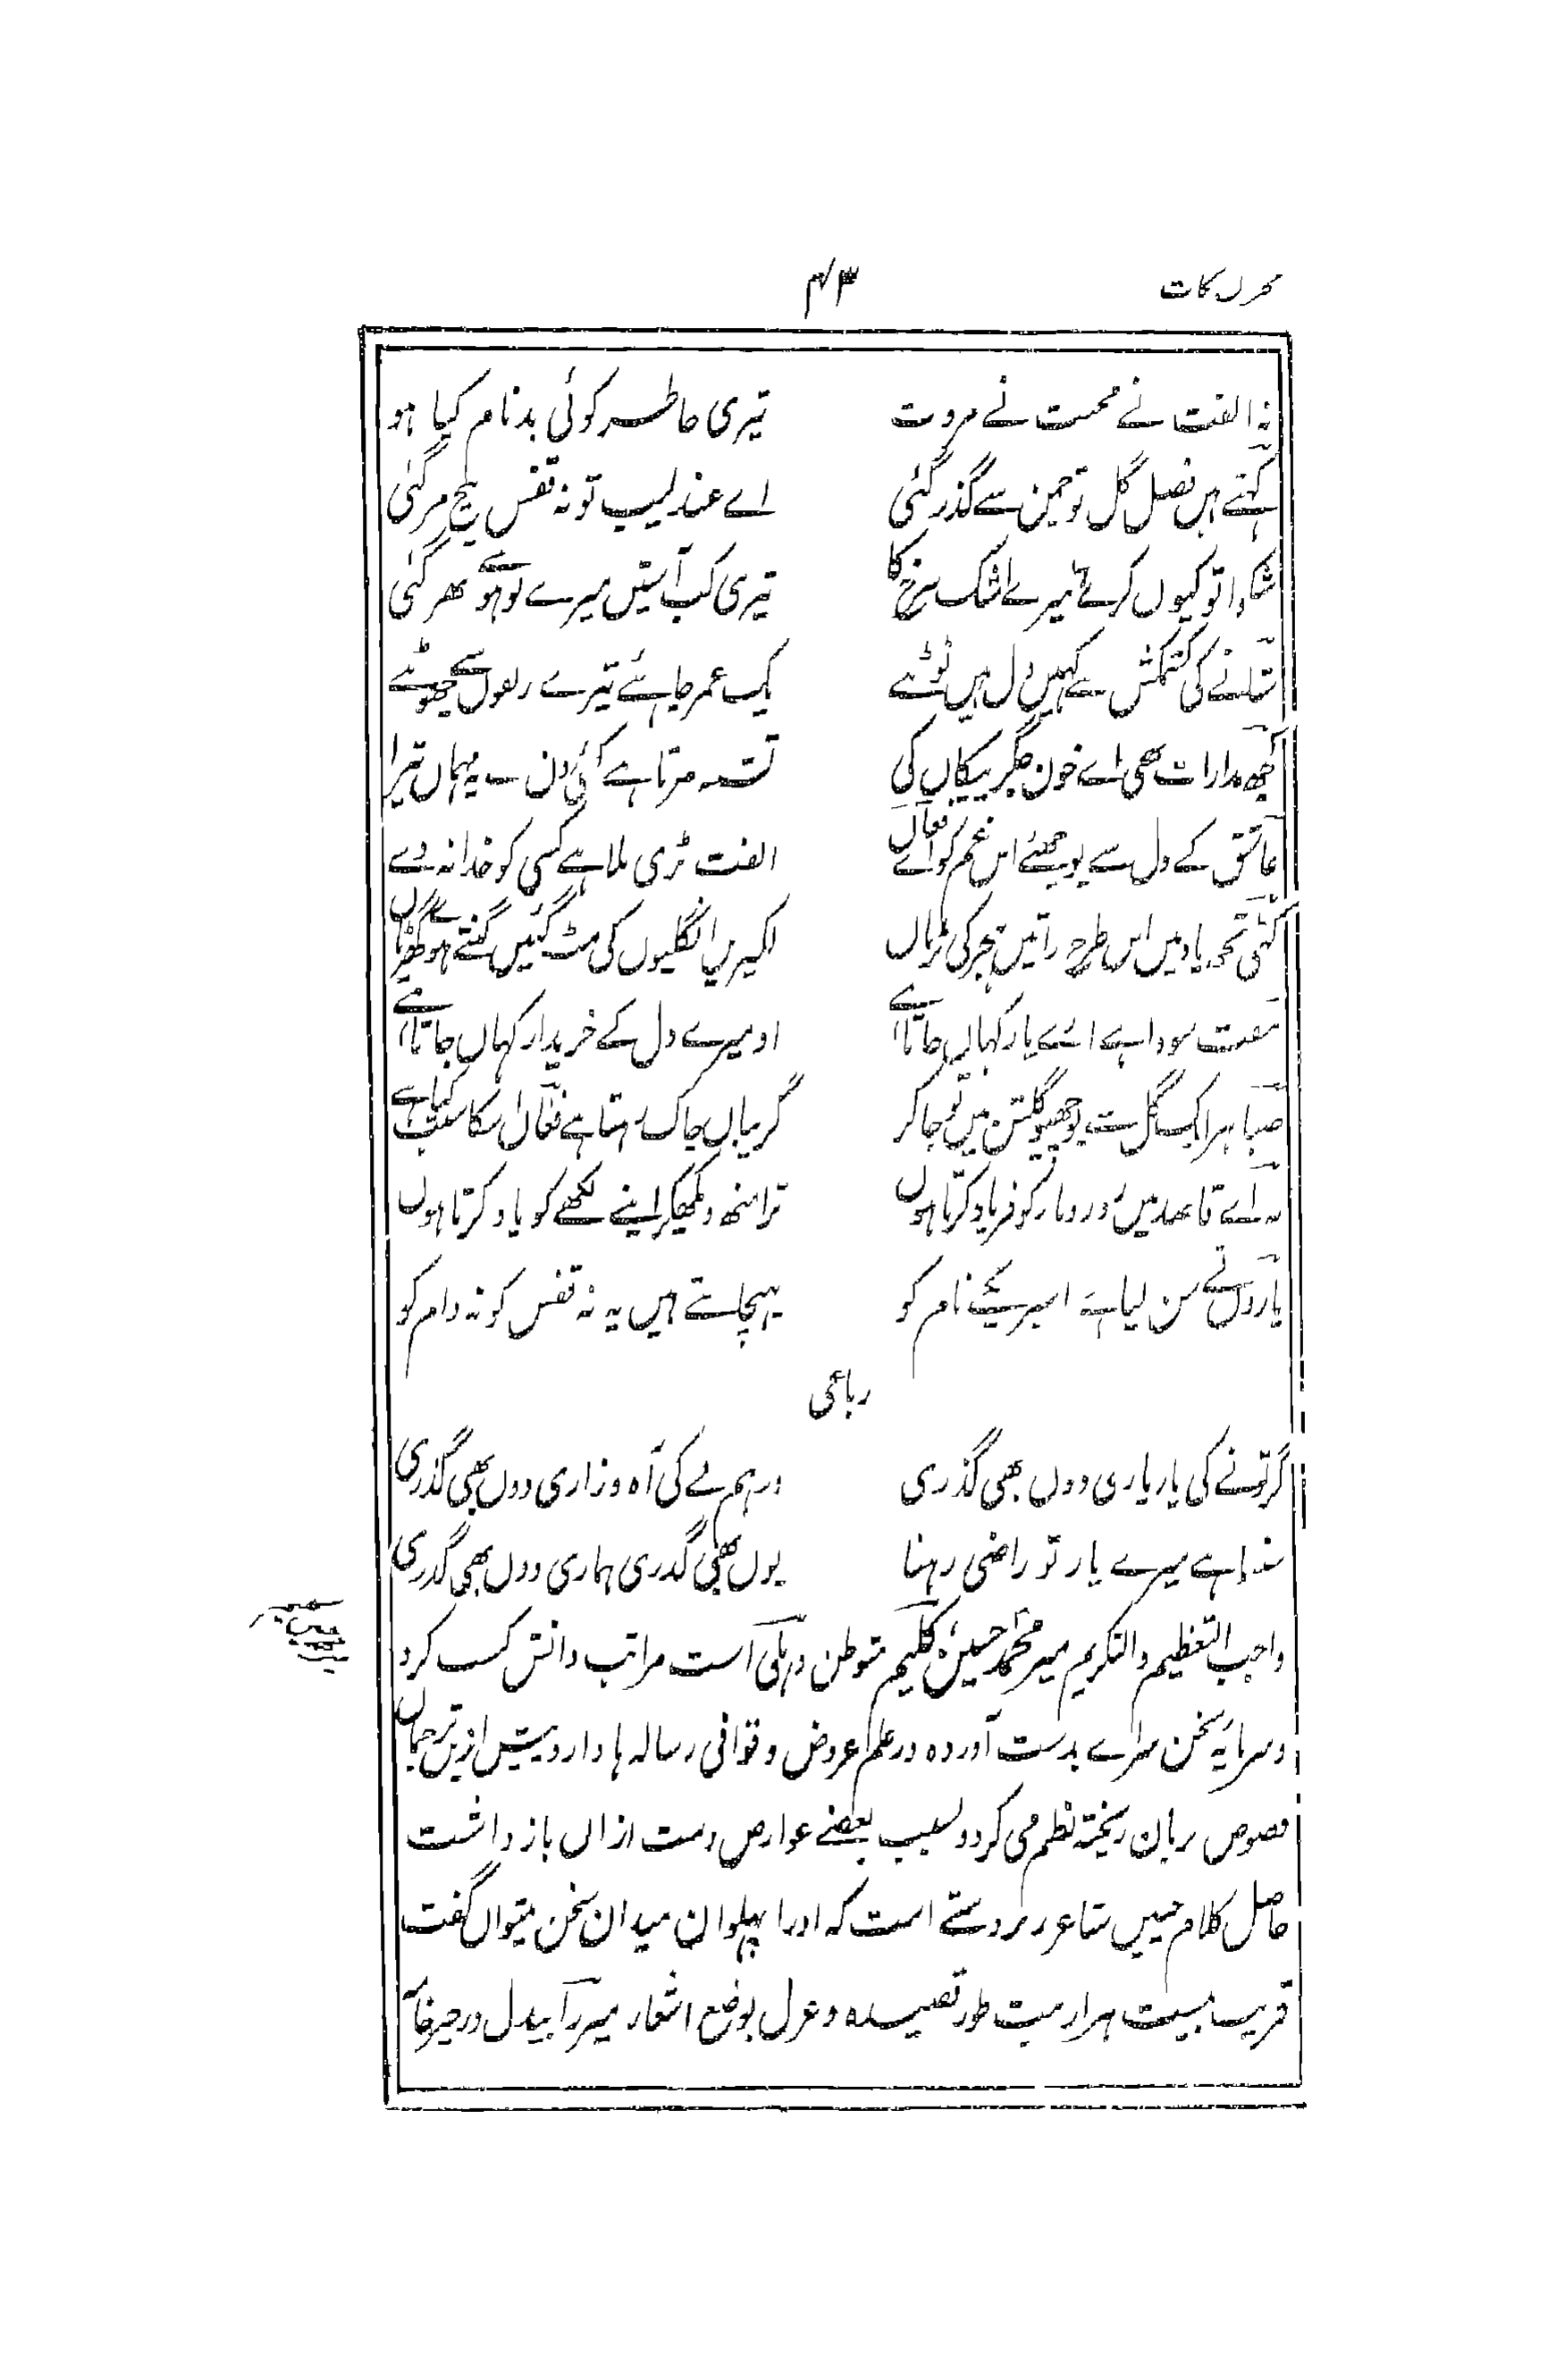 مخزن نکات ۴۳
نہ الفت نے محبت نے مروت تیری خاطر کوئی بدنام کیا ہو
کہتے ہیں فصل گل تو چمن سے گذر گئی اے عندلیب تو نہ قفس بیچ مر گئی
شکوا تو کیوں کرے ہے میرے اشک سرخ کا تیری کب آستیں میرے لوہو سے بھر گئی
شانے کی کشمکش سے کہیں دل ہیں ٹوٹے یک عمر چاہئے تیرے زلفوں سے چھوٹے
کچھ مدارات بھی اے خون جگر پیکاں کی تشنہ مرتا ہے کئی دن سے یہ مہماں تیرا
عاشق کے دل سے پوچھئے اس غم کو اے فغاں الفت بڑی بلا ہے کسی کو خدا نہ دے
کٹی تجھ یاد میں اس طرح راتیں ہجر کی لکیریں انگلیوں کی مٹ گئیں گنتے ہوئے گھڑیاں
مفت سودا ہے اے یار کہاں جاتا ہے او میرے دل کے خریدار کہاں جاتا ہے
صبا ہر ایک گل سے پوچھیو گلشن میں تو جا کر گریباں چاک رہتا ہے فغاں اسکا سبب کیا ہے
نہ اے قاصد میں درد یار کو فریاد کرتا ہوں ترا منھ دیکھکر اپنے لکھے کو یاد کرتا ہوں
یاروں نے سن لیا ہے اسیر کے نام کو پہچانتے ہیں یہ نہ قفس کو نہ دام کو
رباعی
گر تو نے کی یار یاری ووں بھی گذری ور ہم نے کی آہ و زاری ووں بھی گذری
بندا ہے میرے یار تو راضی رہنا یوں بھی گذری ہماری ووں بھی گذری
واجب التعظیم والتکریم میر محمد حسین کلیم متوطن دہلی است مراتب دانش کسب کرد
وسرمایہ سخن سرائے بدست آوردہ در علم عروض و قوافی رسالہ ہا دارد پیش ازیں ترجماں
فصوص بزبان ریختہ نظم می کرد و بسبب بعضے عوارض دست ازاں باز داشت
حاصل کلام چنیں شاعر زبردستے است کہ اورا پہلوان میدان سخن میتواں گفت
قریب بیست ہزار بیت طور قصیدہ و غزل بوضع اشعار میرزا بیدل